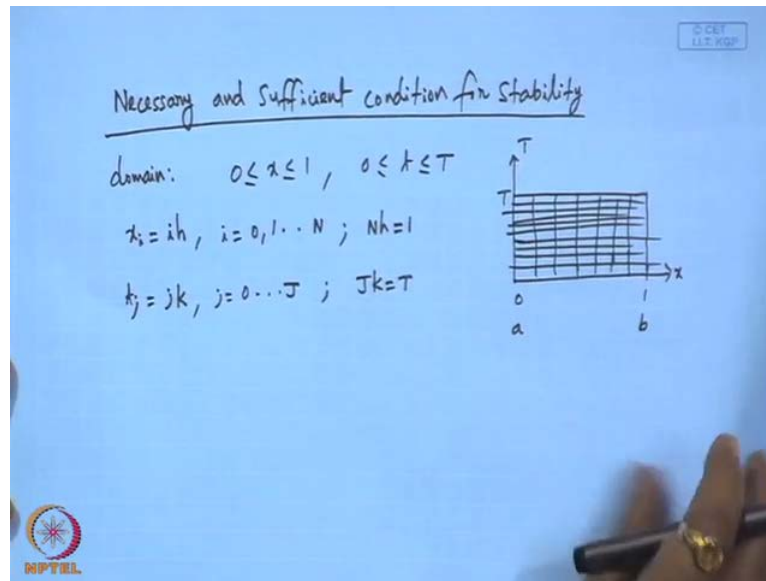 © CET
I.I.T. KGP
Necessary and Sufficient condition for Stability
domain: 0 ≤ x ≤ 1, 0 ≤ t ≤ T
x_i = ih, i = 0, 1 . . N ; Nh = 1
t_j = jk, j = 0 . . . J ; Jk = T
T
T
x
0 1
a b
NPTEL